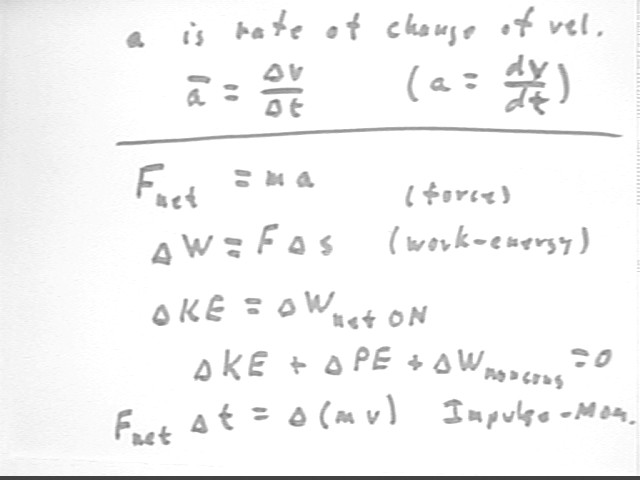 a is rate of change of vel.
a̅ = Δv/Δt (a = dv/dt)
F_net = ma (force)
ΔW = FΔs (work-energy)
ΔKE = ΔW_net ON
ΔKE + ΔPE + ΔW_noncons = 0
F_net Δt = Δ(mv) Impulse-Mom.